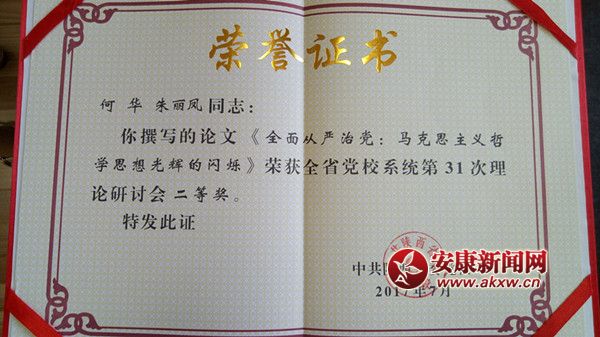 荣誉证书
何 华 朱丽凤同志：
你撰写的论文《全面从严治党：马克思主义哲
学思想光辉的闪烁》荣获全省党校系统第31次理
论研讨会二等奖。
特发此证
中共
2017年7月
安康新闻网
www.akxw.cn